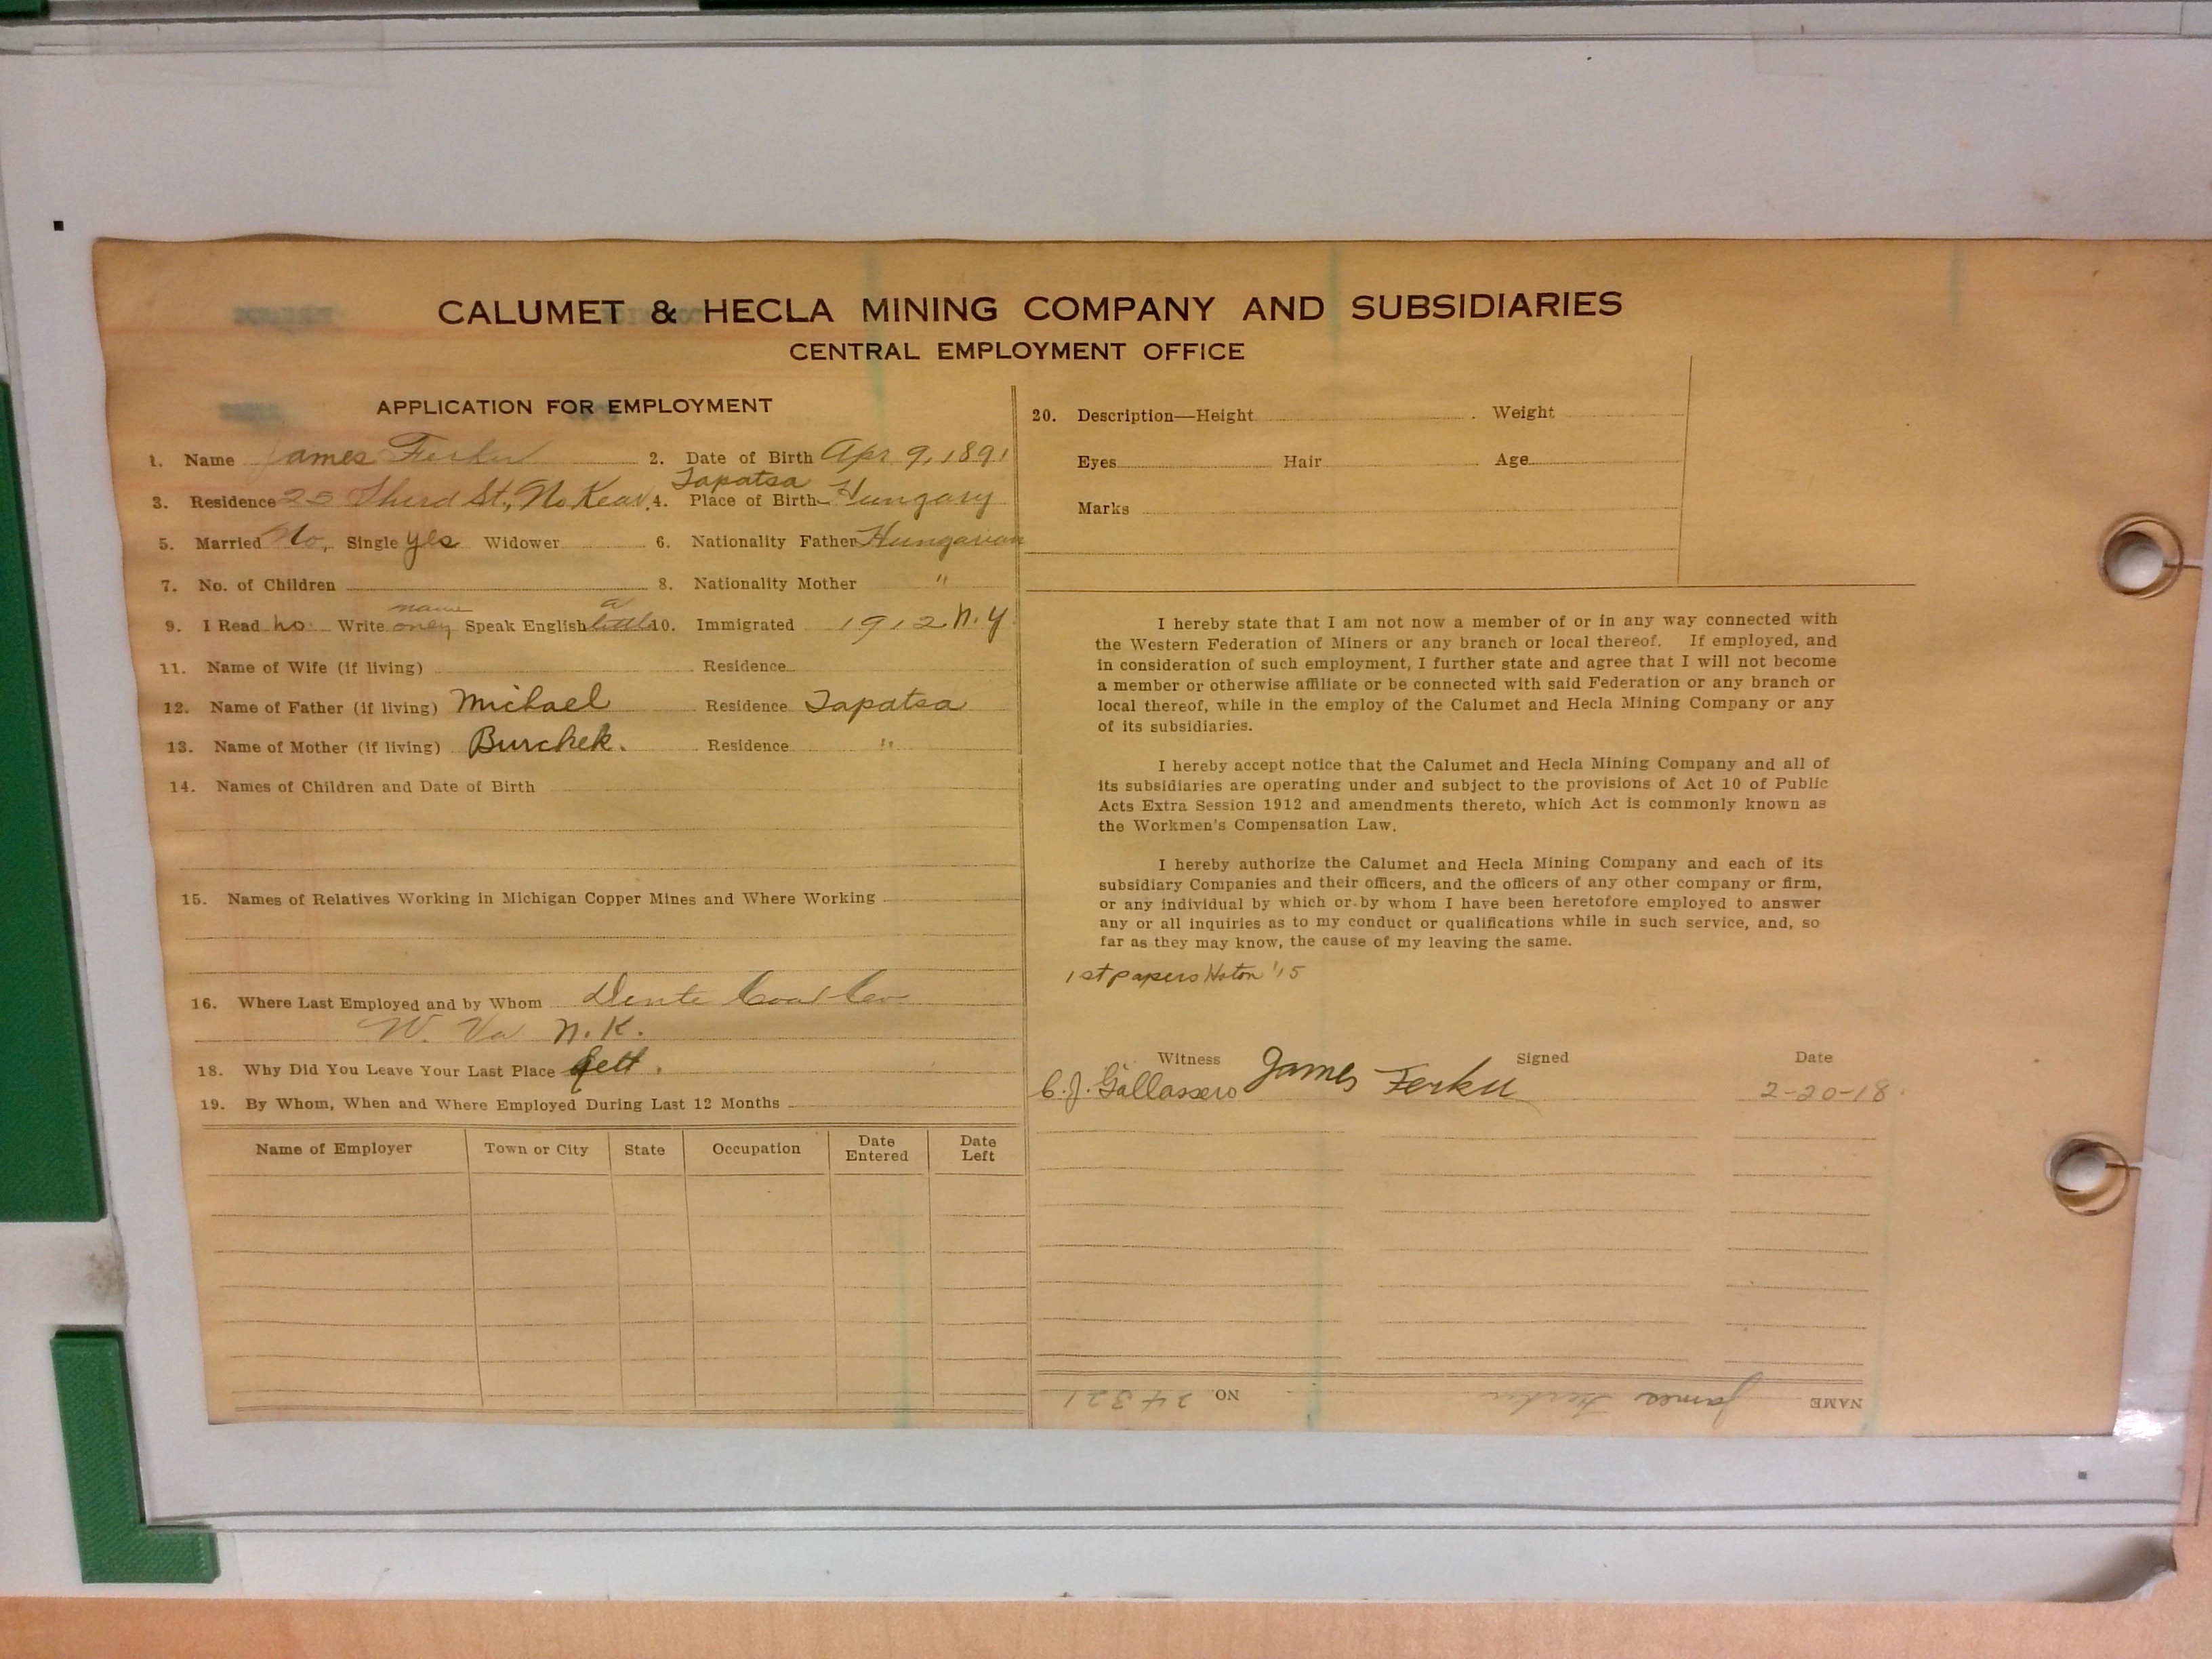 CALUMET & HECLA MINING COMPANY AND SUBSIDIARIES
CENTRAL EMPLOYMENT OFFICE
APPLICATION FOR EMPLOYMENT
1. Name James Ferku 2. Date of Birth Apr 9, 1891
Tapatsa
3. Residence 25 Third St., No Kear. 4. Place of Birth Hungary
5. Married No. Single yes Widower 6. Nationality Father Hungarian
7. No. of Children 8. Nationality Mother "
name a
9. I Read no Write only Speak English little 10. Immigrated 1912 N.Y.
11. Name of Wife (if living) Residence
12. Name of Father (if living) Michael Residence Tapatsa
13. Name of Mother (if living) Burchek. Residence "
14. Names of Children and Date of Birth
15. Names of Relatives Working in Michigan Copper Mines and Where Working
16. Where Last Employed and by Whom Coal Co
W. Va N.K.
18. Why Did You Leave Your Last Place
19. By Whom, When and Where Employed During Last 12 Months
Name of Employer Town or City State Occupation Date Entered Date Left
20. Description—Height Weight
Eyes Hair Age
Marks
I hereby state that I am not now a member of or in any way connected with
the Western Federation of Miners or any branch or local thereof. If employed, and
in consideration of such employment, I further state and agree that I will not become
a member or otherwise affiliate or be connected with said Federation or any branch or
local thereof, while in the employ of the Calumet and Hecla Mining Company or any
of its subsidiaries.
I hereby accept notice that the Calumet and Hecla Mining Company and all of
its subsidiaries are operating under and subject to the provisions of Act 10 of Public
Acts Extra Session 1912 and amendments thereto, which Act is commonly known as
the Workmen's Compensation Law.
I hereby authorize the Calumet and Hecla Mining Company and each of its
subsidiary Companies and their officers, and the officers of any other company or firm,
or any individual by which or by whom I have been heretofore employed to answer
any or all inquiries as to my conduct or qualifications while in such service, and, so
far as they may know, the cause of my leaving the same.
1st papers Hoton '15
Witness Signed Date
C. J. Gallassero James Ferku 2-20-18.
NAME James Ferku NO. 24321